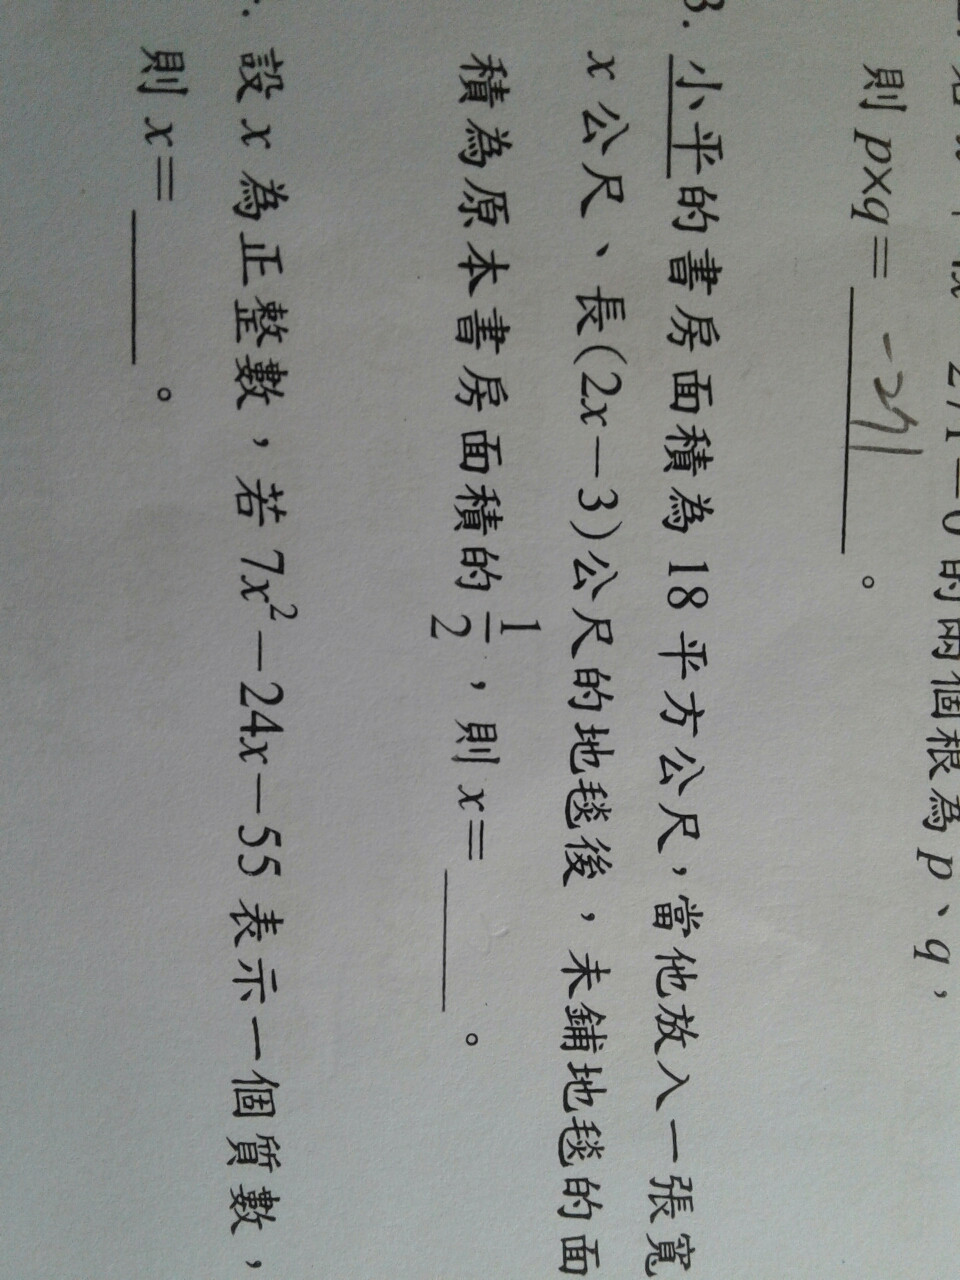 =0 的兩個根為 p、q,
則 p×q= -271 。
3. 小平的書房面積為 18 平方公尺,當他放入一張寬
x 公尺、長(2x-3)公尺的地毯後,未鋪地毯的面
積為原本書房面積的 1/2 ,則 x= ____ 。
設 x 為正整數,若 7x²-24x-55 表示一個質數,
則 x= ____ 。